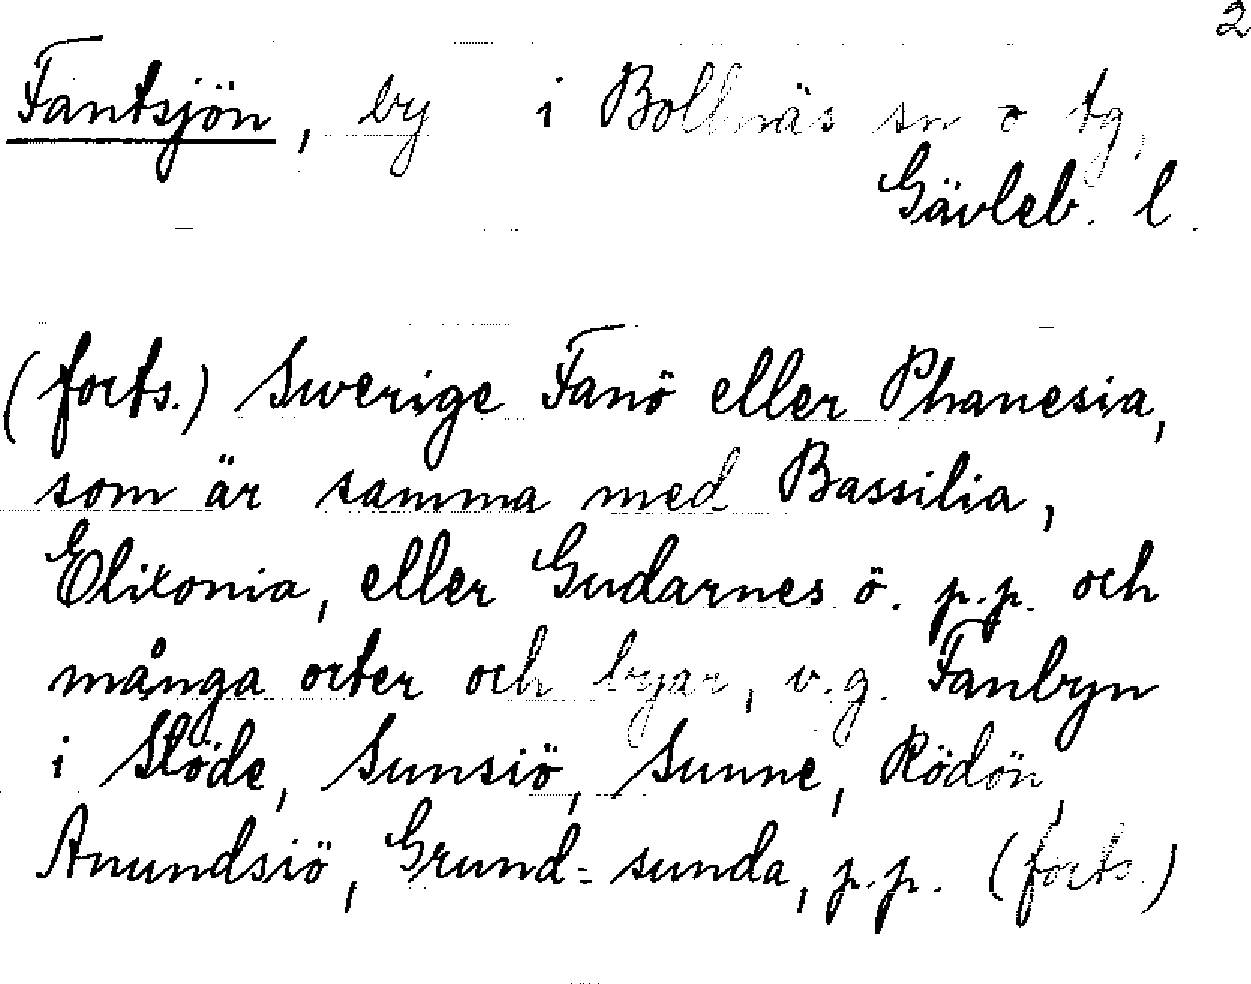 2
Fantsjön, by i Bollnäs sn o tg,
Gävleb. l.
(forts.) Swerige Fanö eller Phanesia,
som är samma med Bassilia,
Elixonia, eller Gudarnes ö. p.p. och
många orter och byar, v.g. Fanbyn
i Stöde, Sunsiö, Sunne, Rödön,
Anundsiö, Grund-sunda, p.p. (forts.)